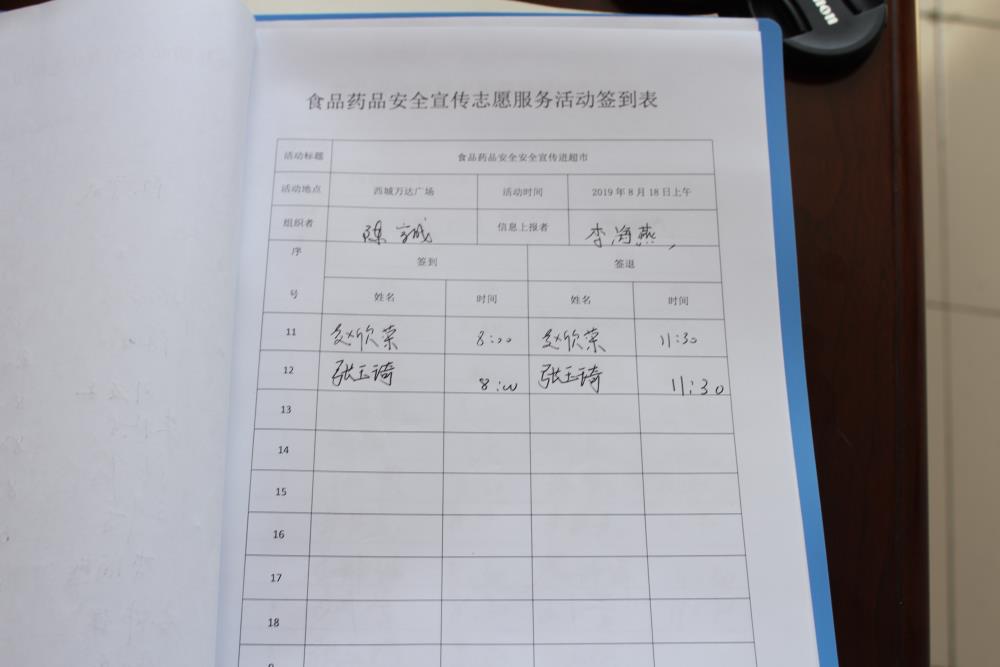 non
食品药品安全宣传志愿服务活动签到表
活动标题 食品药品安全安全宣传进超市
活动地点 西城万达广场 活动时间 2019年8月18日上午
组织者 陈 诚 信息上报者 李海燕
序号 签到 签退
姓名 时间 姓名 时间
11 赵欣荣 8:00 赵欣荣 11:30
12 张玉琦 8:00 张玉琦 11:30
13
14
15
16
17
18